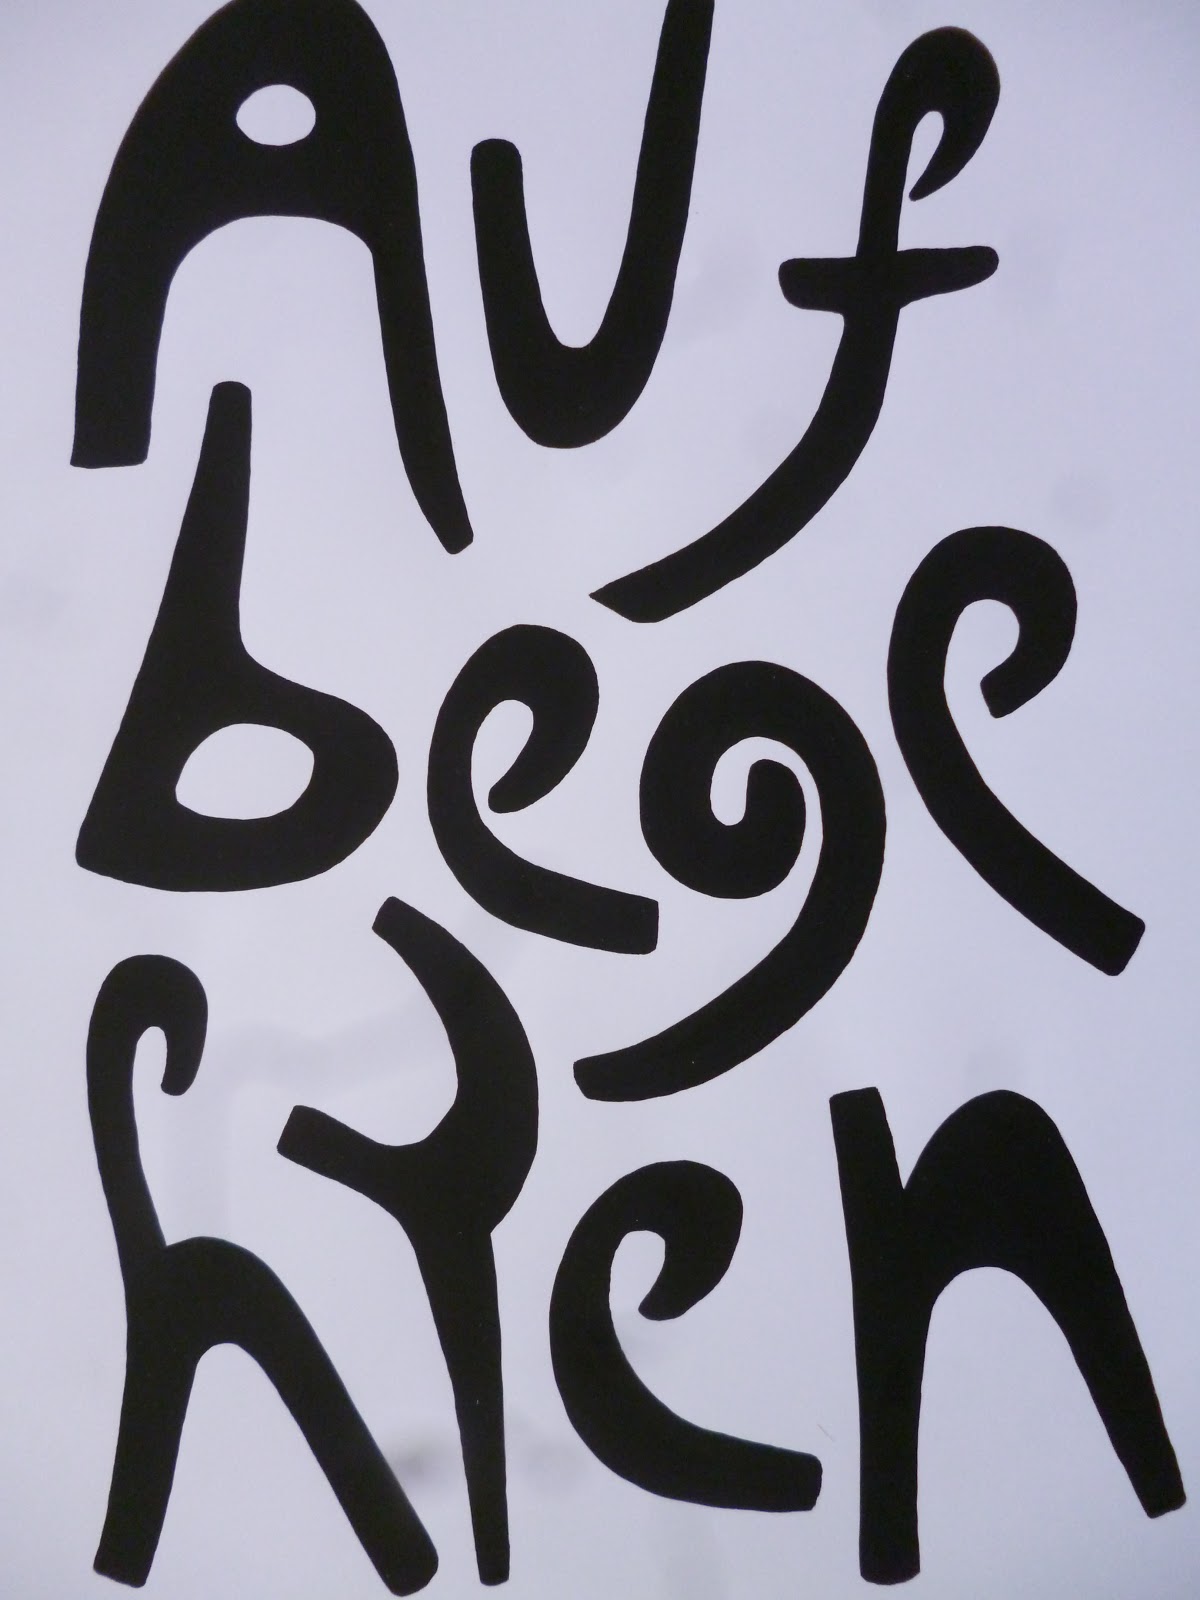 Auf
bege
hren